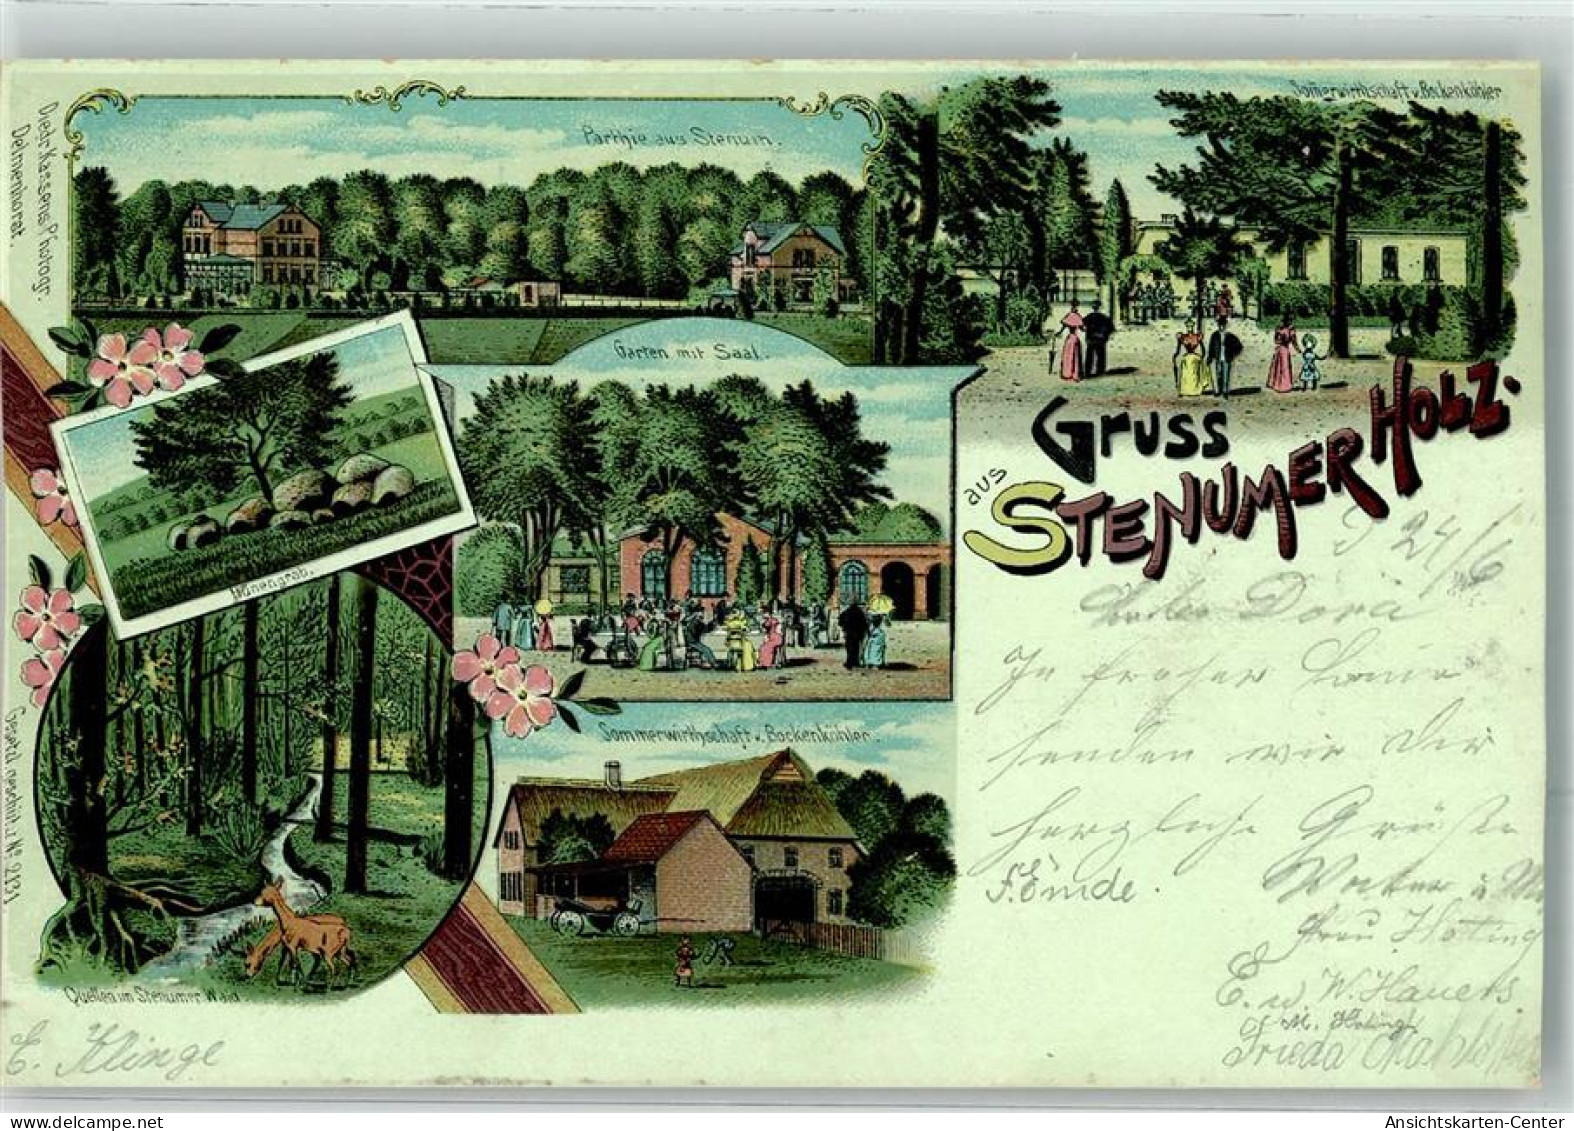 Diedr. Kassens, Photogr.
Delmenhorst.
Parthie aus Stenum.
Sommerwirthschaft v. Backenköhler
Garten mit Saal.
Hünengrab.
Sommerwirthschaft v. Backenköhler.
Quellen im Stenumer Wald.
Gesetzl. geschützt No. 2131.
Gruss
aus
STENUMER HOLZ.
24/6
Liebe Dora
In froher Laune
senden wir Dir
herzliche Grüße
F. Emde.
Frau Hoting
E. u. W. Hauers
M. Hoting
Frieda
E. Klinge
Ansichtskarten-Center